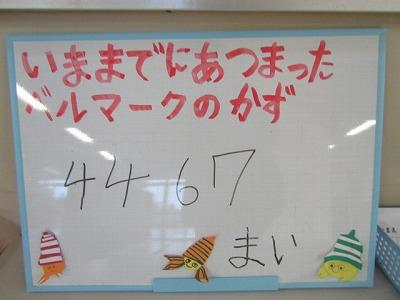 いままでにあつまった
ベルマークのかず
4467
まい